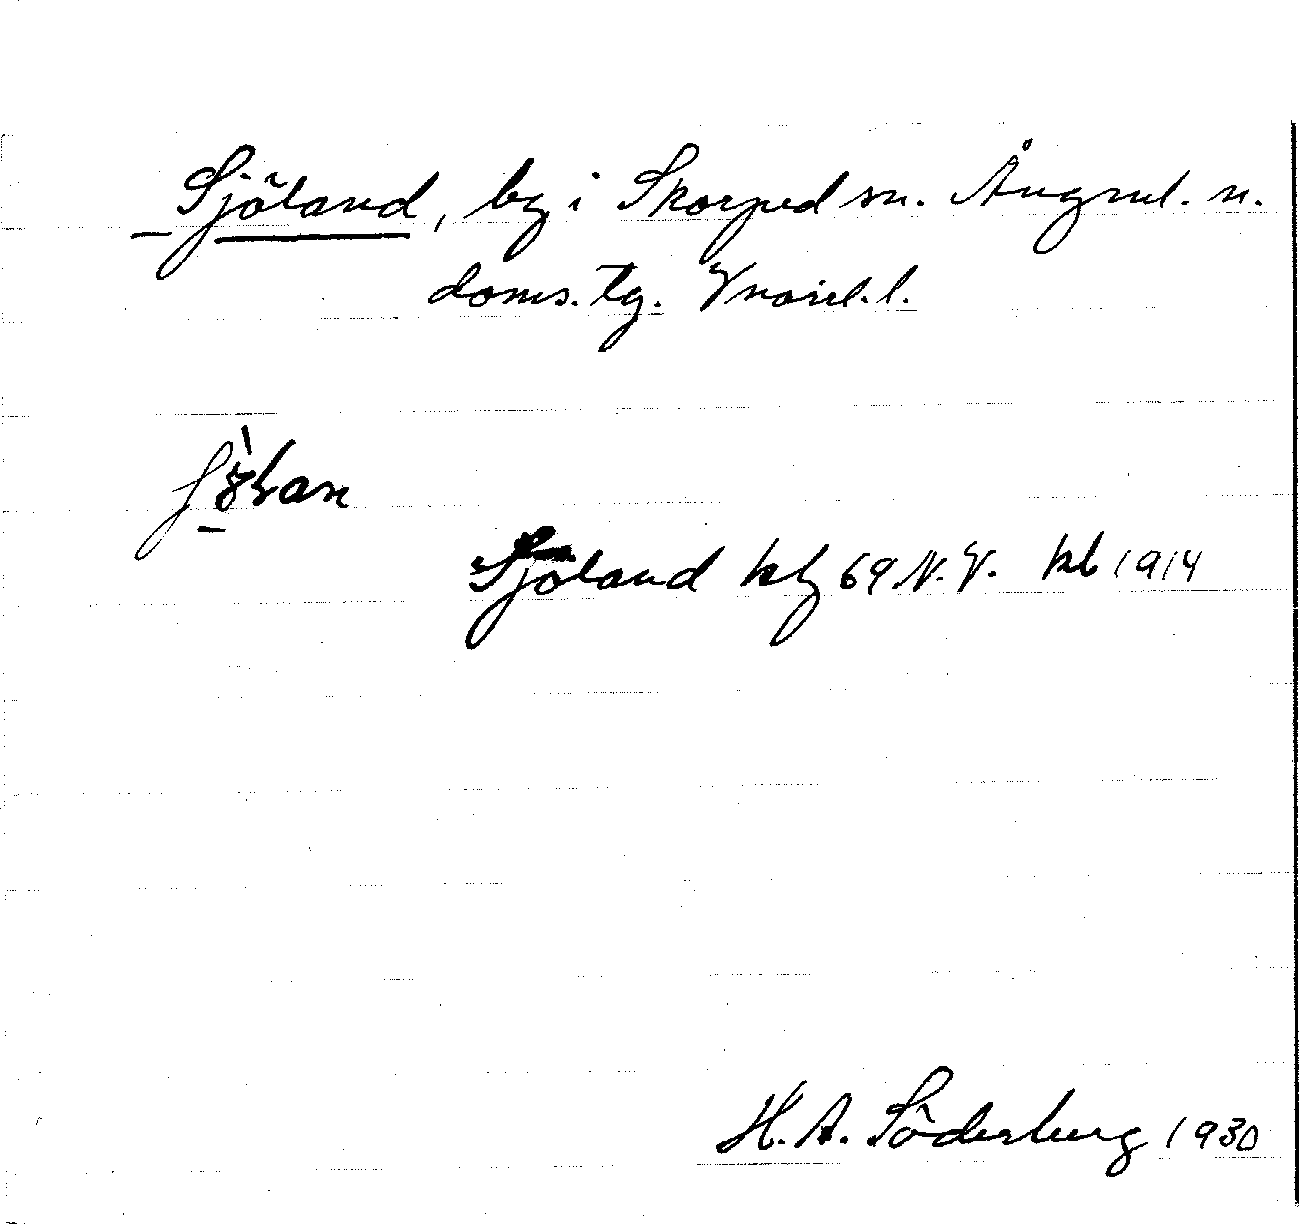 Sjöland, by i Skorped sn. Ångml. n.
doms. tg. Vnorrl. l.
Sjöland kbl 69 N.V. kb 1914
H. A. Söderberg 1930